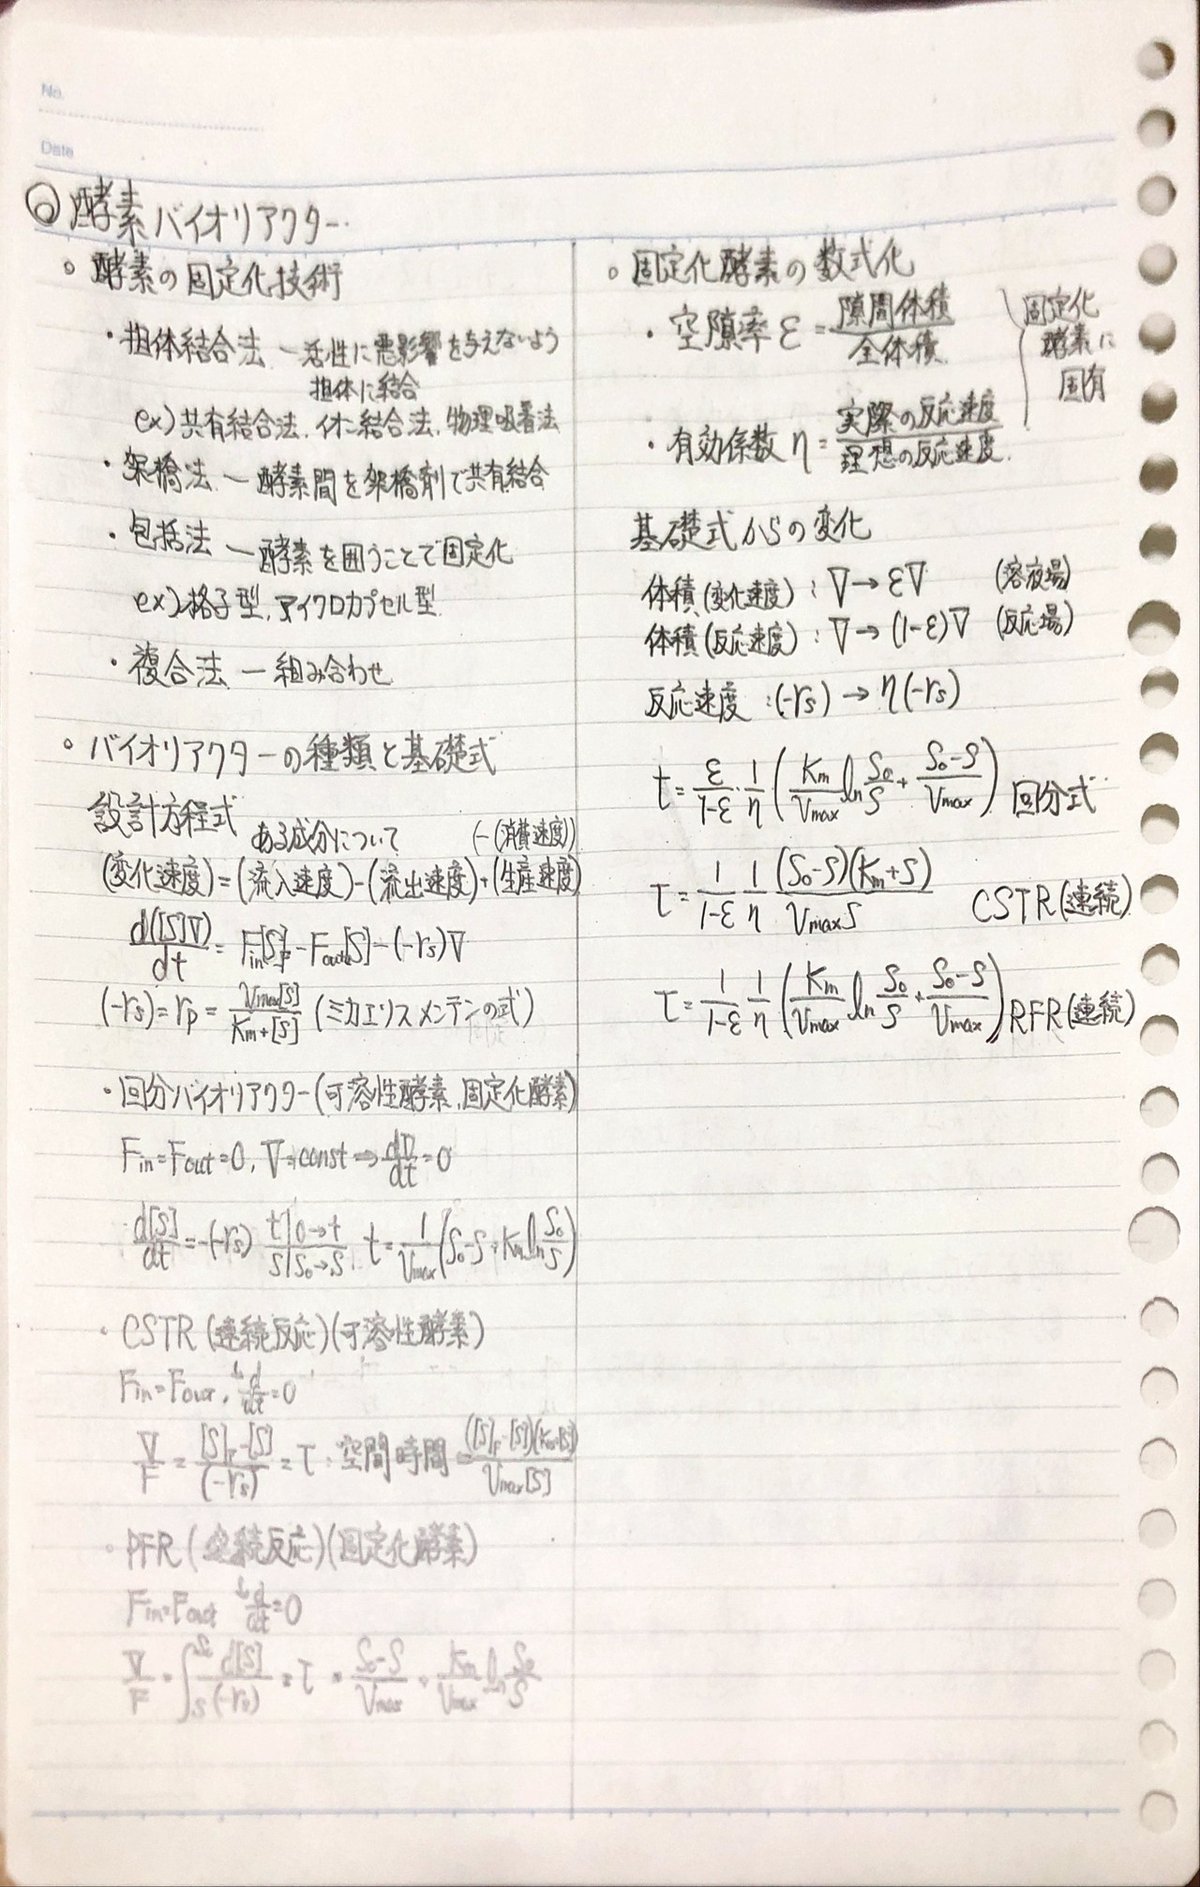 No.
Date
◎酵素バイオリアクター
○ 酵素の固定化技術
・担体結合法 ー活性に悪影響を与えないよう
担体に結合
ex) 共有結合法、イオン結合法、物理吸着法
・架橋法 ー 酵素間を架橋剤で共有結合
・包括法 ー酵素を囲うことで固定化
ex) 格子型、マイクロカプセル型
・複合法 ー組み合わせ
○ バイオリアクターの種類と基礎式
設計方程式 ある成分について (-(消費速度))
(変化速度)=(流入速度)-(流出速度)+(生産速度)
d([S]V)/dt = Fin[S]F - Fout[S] - (-rs)V
(-rs) = rp = Vmax[S]/Km+[S] (ミカエリスメンテンの式)
・回分バイオリアクター(可溶性酵素、固定化酵素)
Fin=Fout=0, V=const ⇒ dV/dt=0
d[S]/dt = -(-rs) t|0→t S|S₀→S t=1/Vmax(S₀-S+Km ln S₀/S)
・CSTR (連続反応)(可溶性酵素)
Fin=Fout, d/dt=0
V/F = [S]F-[S]/(-rs) = τ : 空間時間 = ([S]F-[S])(Km+[S])/Vmax[S]
・PFR (連続反応)(固定化酵素)
Fin=Fout d/dt=0
V/F = ∫S S₀ d[S]/(-rs) = τ = S₀-S/Vmax + Km/Vmax ln S₀/S
○ 固定化酵素の数式化
・空隙率 ε = 隙間体積/全体積
・有効係数 η = 実際の反応速度/理想の反応速度
固定化
酵素に
固有
基礎式からの変化
体積(変化速度) : V → εV (溶液場)
体積(反応速度) : V → (1-ε)V (反応場)
反応速度 : (-rs) → η(-rs)
t = ε/1-ε · 1/η (Km/Vmax ln S₀/S + S₀-S/Vmax) 回分式
τ = 1/1-ε 1/η (S₀-S)(Km+S)/VmaxS CSTR(連続)
τ = 1/1-ε 1/η (Km/Vmax ln S₀/S + S₀-S/Vmax) RFR(連続)